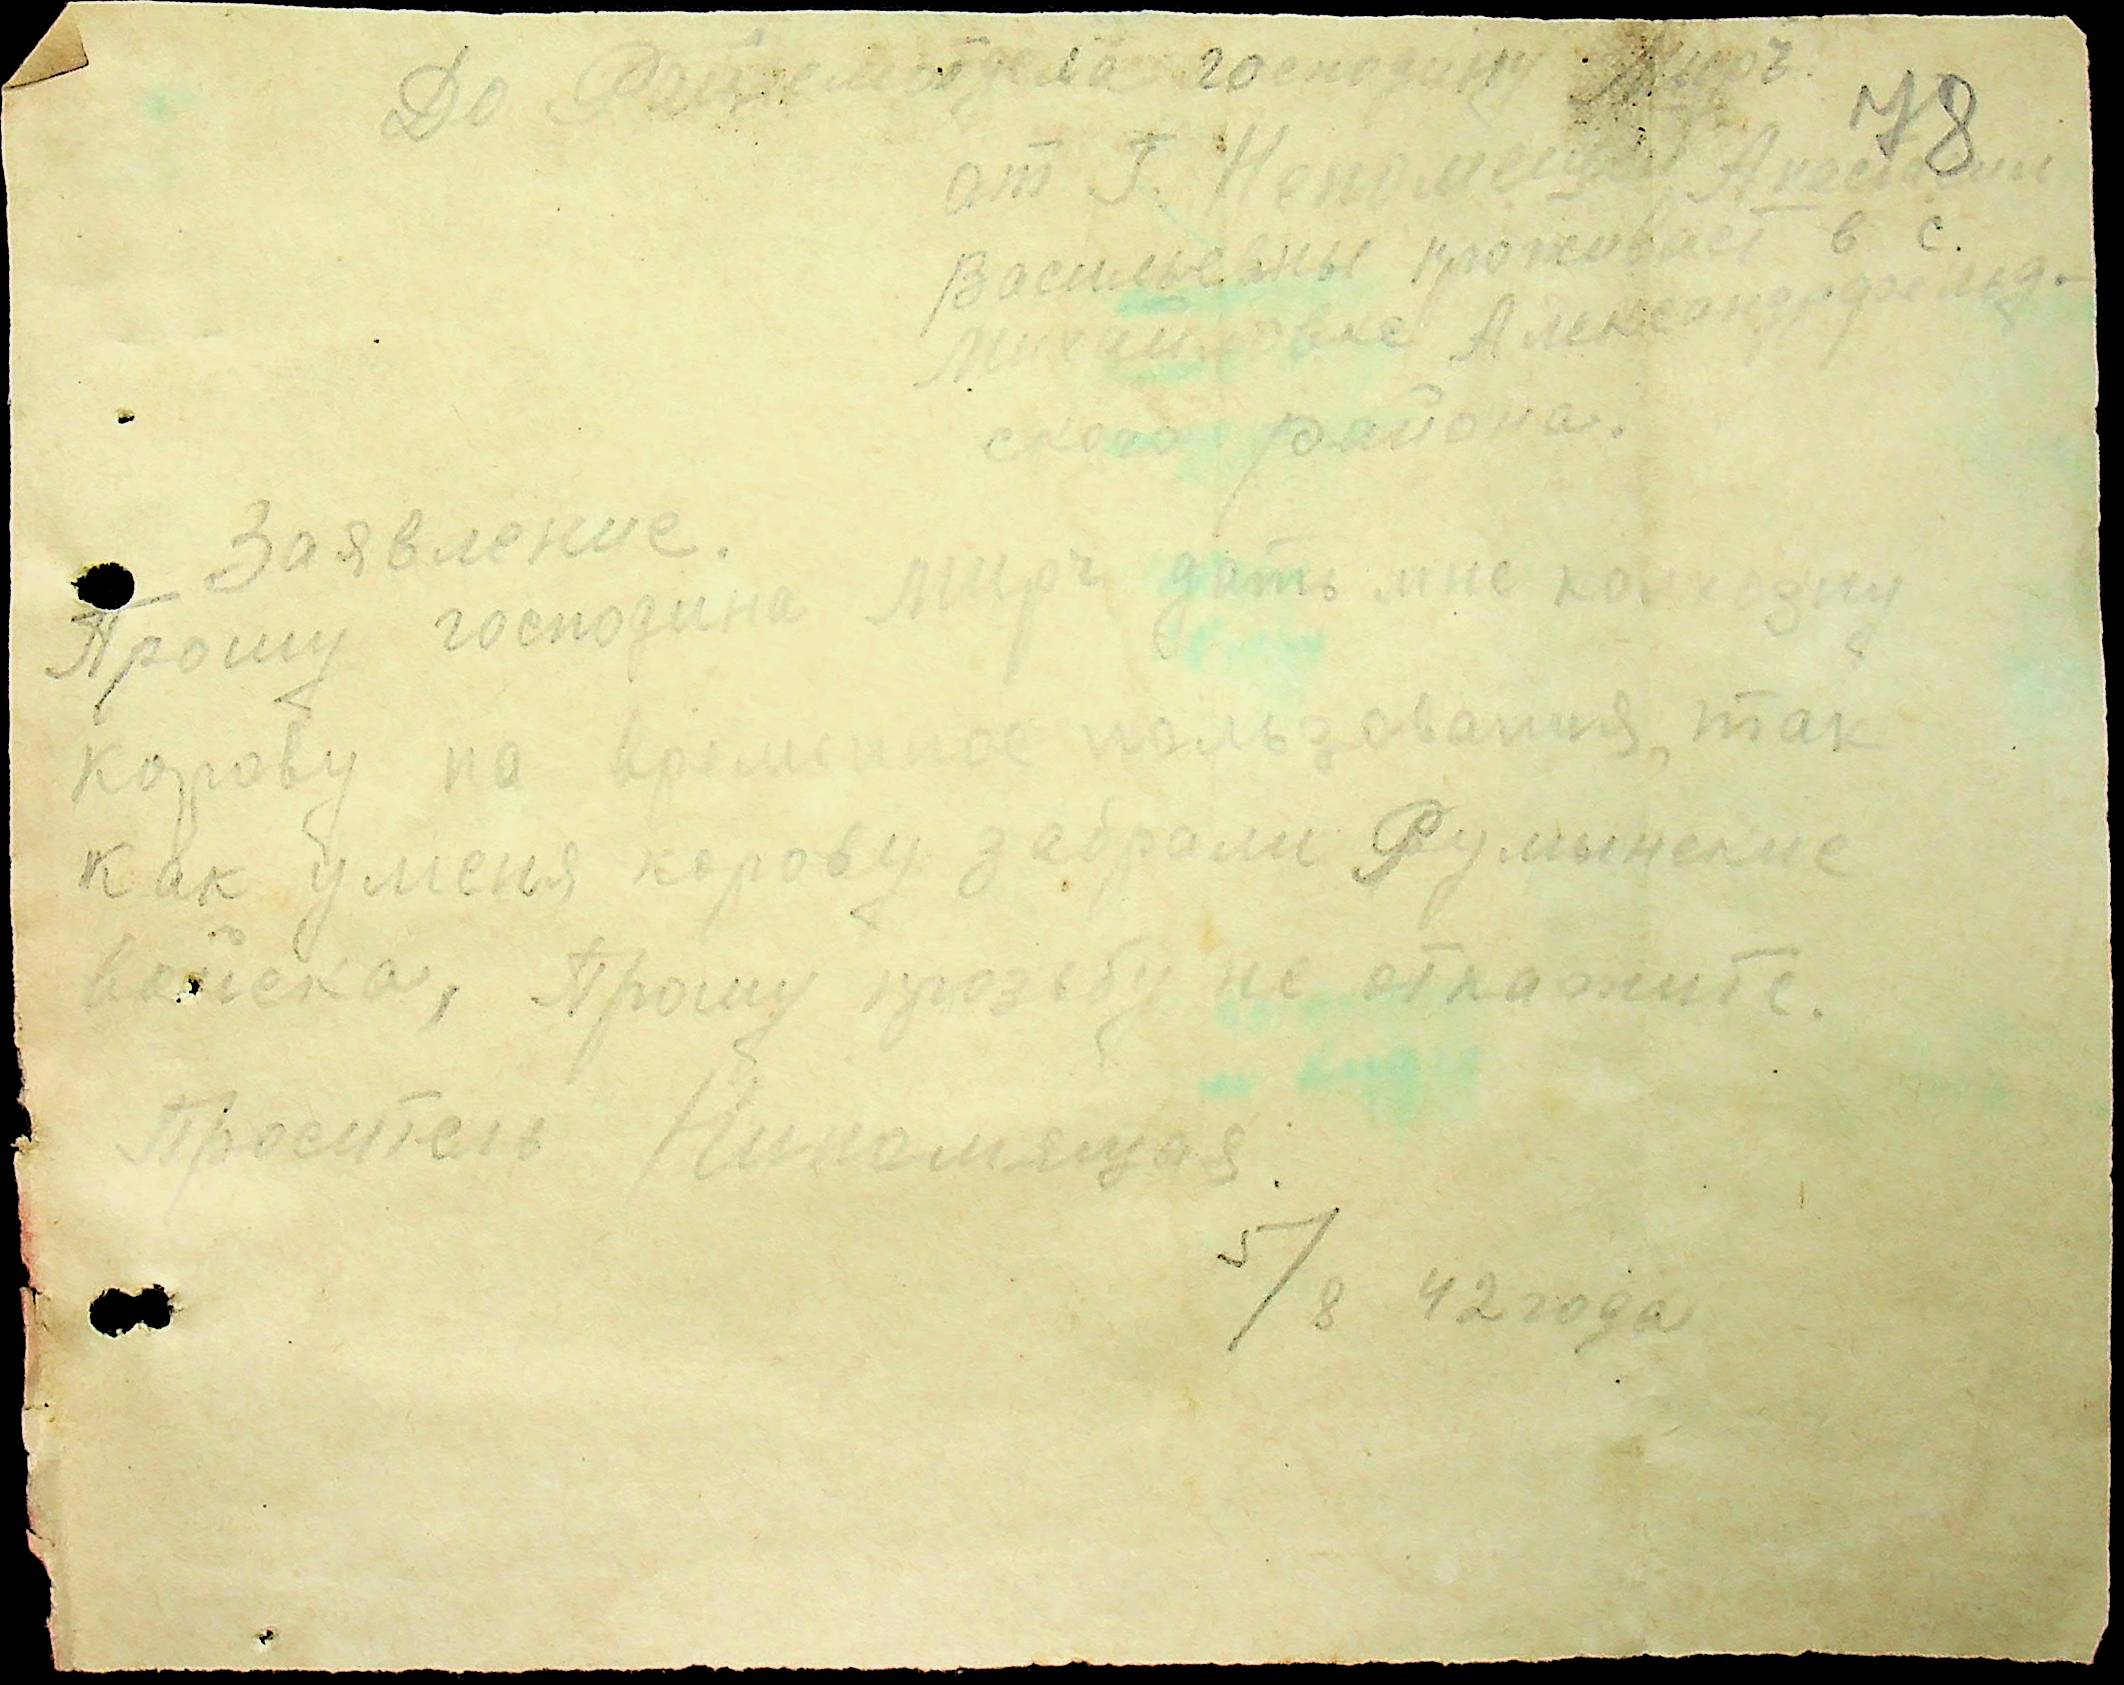 До Райземотдела господину Мирч.
78
от Г. Непомещей Анастасии
Васильевны проживает в с.
Михайловке Александрфельд-
ского района.
Заявление.
Прошу господина Мирч дать мне колхозну
корову на временное пользования, так
как у меня корову забрали Румынские
войска, Прошу прозьбу не откажите.
Проситель Нипомящая.
5/8 42 года